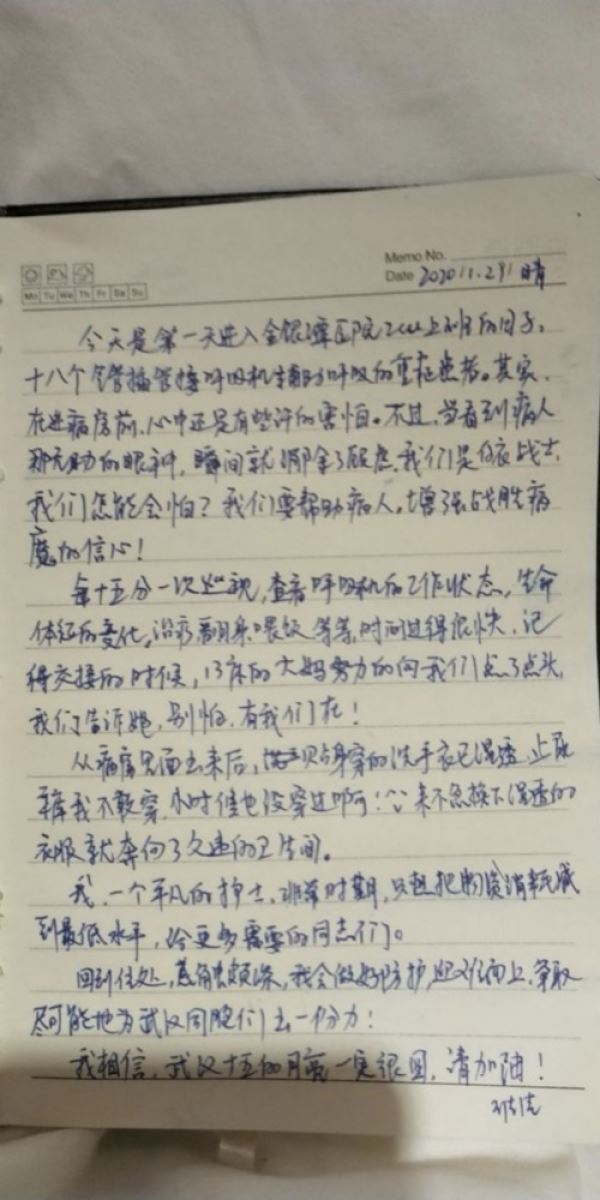 Memo No.
Date 2020/1.29/ 晴
Mo Tu We Th Fr Sa Su
今天是第一天进入金银潭医院ICU上班的日子。
十八个气管插管接呼吸机辅助呼吸的重症患者。其实,
在进病房前,心中还是有些许的害怕。不过,当看到病人
那无助的眼神,瞬间就消除了顾虑。我们是白衣战士,
我们怎能会怕?我们要帮助病人,增强战胜病
魔的信心!
每十五分一次巡视,查看呼吸机的工作状态,生命
体征的变化,治疗翻身喂饮等等,时间过得很快,记
得交接的时候,13床的大妈努力的向我们点了点头,
我们告诉她,别怕,有我们在!
从病房里面出来后,贴身穿的洗手衣已湿透,
裤我不敢穿,小时候也没穿过啊!来不急换下湿透的
衣服就奔向了久违的卫生间。
我,一个平凡的护士,非常时期,只想把物资消耗减
到最低水平,给更多需要的同志们。
回到住处,我会做好防护,迎难而上,争取
尽可能地为武汉同胞们出一份力!
我相信,武汉十五的月亮一定很圆,请加油!